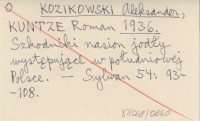 KOZIKOWSKI Aleksander,
KUNTZE Roman 1936.
Szkodniki nasion jodły
występujące w południowej
Polsce. — Sylwan 54: 93-
-108.